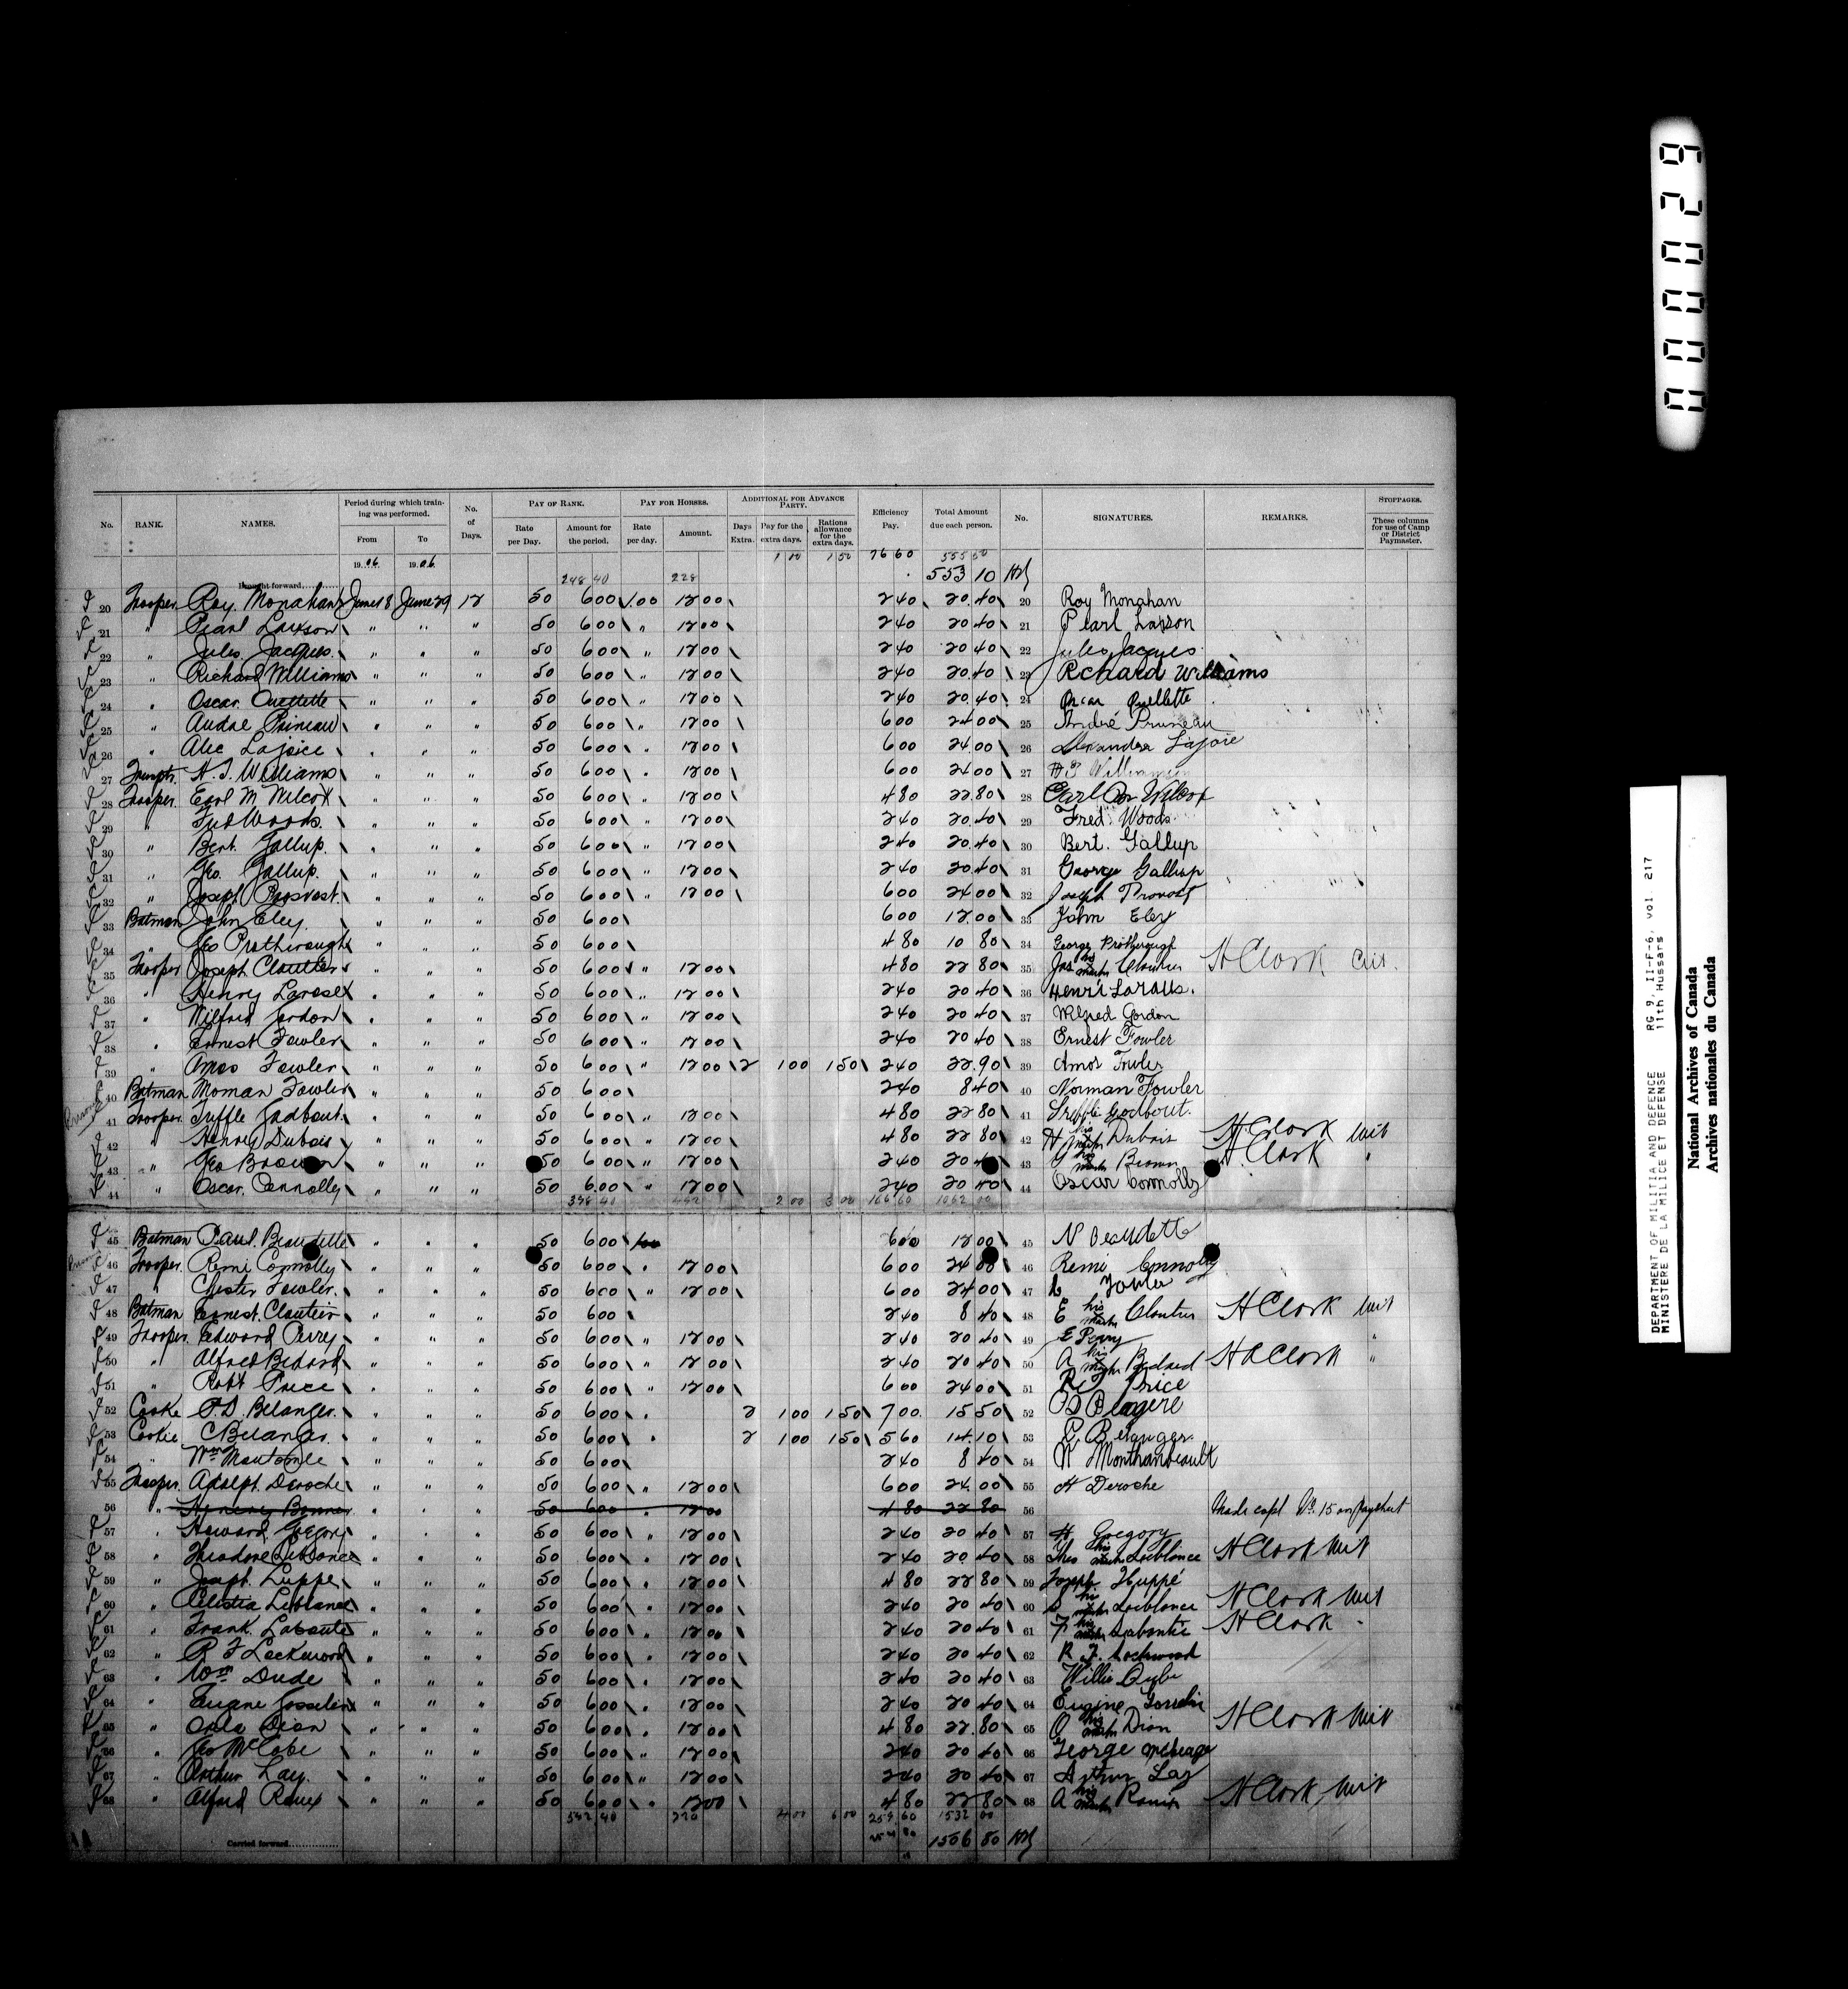 No. RANK. NAMES. Period during which training was performed. No. of Days. PAY OF RANK. PAY FOR HORSES. ADDITIONAL FOR ADVANCE PARTY. Efficiency Pay. Total Amount due each person. No. SIGNATURES. REMARKS. STOPPAGES.
From To Rate per Day. Amount for the period. Rate per day. Amount. Days Extra. Pay for the extra days. Rations allowance for the extra days. These columns for use of Camp or District Paymaster.
1906. 1906. 1 00 1 50 76 60 555 50
Brought forward 248 40 228 553 10
20 Trooper Roy Monahan June 18 June 29 12 50 6 00 1.00 12 00 2 40 20.40 20 Roy Monahan
21 " Pearl Laxson " " " 50 6 00 " 12 00 2 40 20 40 21 Pearl Laxson
22 " Jules Jacques " " " 50 6 00 " 12 00 2 40 20 40 22 Jules Jacques
23 " Richard Williams " " " 50 6 00 " 12 00 2 40 20.40 23 Richard Williams
24 " Oscar Ouellette " " " 50 6 00 " 12 00 2 40 20.40 24 Oscar Ouellette
25 " Andre Primeau " " " 50 6 00 " 12 00 6 00 24 00 25 André Pruneau
26 " Alec Lajoice " " " 50 6 00 " 12 00 6 00 24.00 26 Lajoie
27 Trumptr. H. T. Williams " " " 50 6 00 " 12 00 6 00 24 00 27
28 Trooper Earl M Wilcox " " " 50 6 00 " 12 00 4 80 22 80 28 Earl M Wilcox
29 " Fred Woods " " " 50 6 00 " 12 00 2 40 20.40 29 Fred Woods
30 " Bert. Gallup. " " " 50 6 00 " 12 00 2 40 20.40 30 Bert. Gallup
31 " Geo. Gallup. " " " 50 6 00 " 12 00 2 40 20.40 31 George Gallup
32 " Joseph Proovost. " " " 50 6 00 " 12 00 6 00 24 00 32 Joseph Provost
33 Batman John Eley " " " 50 6 00 6 00 12.00 33 John Eley
34 " Geo Protherough " " " 50 6 00 4 80 10 80 34 George Protherough
35 Trooper Joseph Cloutier " " " 50 6 00 " 12 00 4 80 22 80 35 Jos his mark Cloutier H Clark Wit.
36 " Henry Larose " " " 50 6 00 " 12 00 2 40 20 40 36 Henri
37 " Wilfred Gordon " " " 50 6 00 " 12 00 2 40 20 40 37 Wilfred Gordon
38 " Ernest Fowler " " " 50 6 00 " 12 00 2 40 20 40 38 Ernest Fowler
39 " Amos Fowler " " " 50 6 00 " 12 00 2 1 00 1 50 2 40 22.90 39 Amos Fowler
40 Batman Moman Fowler " " " 50 6 00 2 40 8 40 40 Norman Fowler
41 Trooper Tuffle Godbout " " " 50 6 00 " 12 00 4 80 22 80 41 Godbout.
42 " Henry Dubois " " " 50 6 00 " 12 00 4 80 22 80 42 H his mark Dubois H Clark Wit
43 " Geo Brown " " " 50 6 00 " 12 00 2 40 20 4 43 G his mark Brown H. Clark "
44 " Oscar Connolly " " " 50 6 00 " 12 00 2 40 20 40 44 Oscar Connolly
398 40 2 00 3 00 166 60 1052 00
45 Batman Paul Beaudette " " " 50 6 00 1 00 6 00 12 00 45 N Beaudette
46 Trooper. Remi Connolly " " " 50 6 00 " 12 00 6 00 24 00 46 Remi Connolly
47 " Chester Fowler. " " " 50 6 00 " 12 00 6 00 24 00 47 Fowler
48 Batman Ernest Cloutier " " " 50 6 00 2 40 8 40 48 E his mark Cloutier H Clark Wit
49 Trooper. Edward Perry " " " 50 6 00 " 12 00 2 40 20 40 49 E Perry "
50 " Alfred Bedard " " " 50 6 00 " 12 00 2 40 20 40 50 A his mark Bedard H A Clark "
51 " Robt Price " " " 50 6 00 " 12 00 6 00 24 00 51 Price
52 Cooke P. D. Belanger. " " " 50 6 00 " 2 1 00 1 50 7 00. 15 50 52
53 Cooke C Belanger. " " " 50 6 00 " 2 1 00 1 50 5 60 14.10 53 C Belanger.
54 " Wm " " " 50 6 00 2 40 8 40 54 W Monthambeault
55 Trooper. Adolph. Deroche " " " 50 6 00 " 12 00 6 00 24.00 55 A Deroche
56 " Bonner " " " 50 6 00 " 12 00 4 80 22 80 56 Made capl No. 15 on Paysheet
57 " Howard Gregory " " " 50 6 00 " 12 00 2 40 20 40 57 H Gregory
58 " Theodore Leblance " " " 50 6 00 " 12 00 2 40 20.40 58 Theo his mark Leblance H Clark Wit
59 " Joseph Luppe " " " 50 6 00 " 12 00 4 80 22 80 59 Joseph Huppé
60 " Celistia Leblance " " " 50 6 00 " 12 00 2 40 20 40 60 S his mark Leblance H Clark Wit
61 " Frank. Labonte " " " 50 6 00 " 12 00 2 40 20 40 61 F his mark Labontie H Clark "
62 " R F Lockwood " " " 50 6 00 " 12 00 2 40 20 40 62 R. F. Lockwood
63 " Wm Dude " " " 50 6 00 " 12 00 2 40 20 40 63 Willie Dube
64 " Eugane Gosselin " " " 50 6 00 " 12 00 2 40 20 40 64 Eugine Gosselin
65 " Orila Dion " " " 50 6 00 " 12 00 4 80 22.80 65 O his mark Dion H Clark Wit
66 " Geo McCabe " " " 50 6 00 " 12 00 2 40 20 40 66 George
67 " Arthur Lay. " " " 50 6 00 " 12 00 2 40 20 40 67 Arthur Lay
68 " Alfred " " " 50 6 00 " 12 00 4 80 22 80 68 A his mark H Clark, Wit
542 40 4 00 6 00 259 60 1532 00
Carried forward 1506 80
000029
DEPARTMENT OF MILITIA AND DEFENCE RG 9, II-F-6, vol 217
MINISTERE DE LA MILICE ET DEFENSE 11th Hussars
National Archives of Canada
Archives nationales du Canada